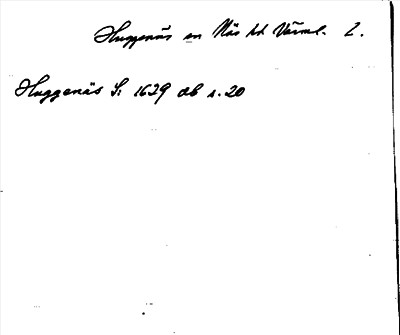 Huggenäs sn Näs hd Värml. L.
Huggenäs S: 1629 ab s. 20